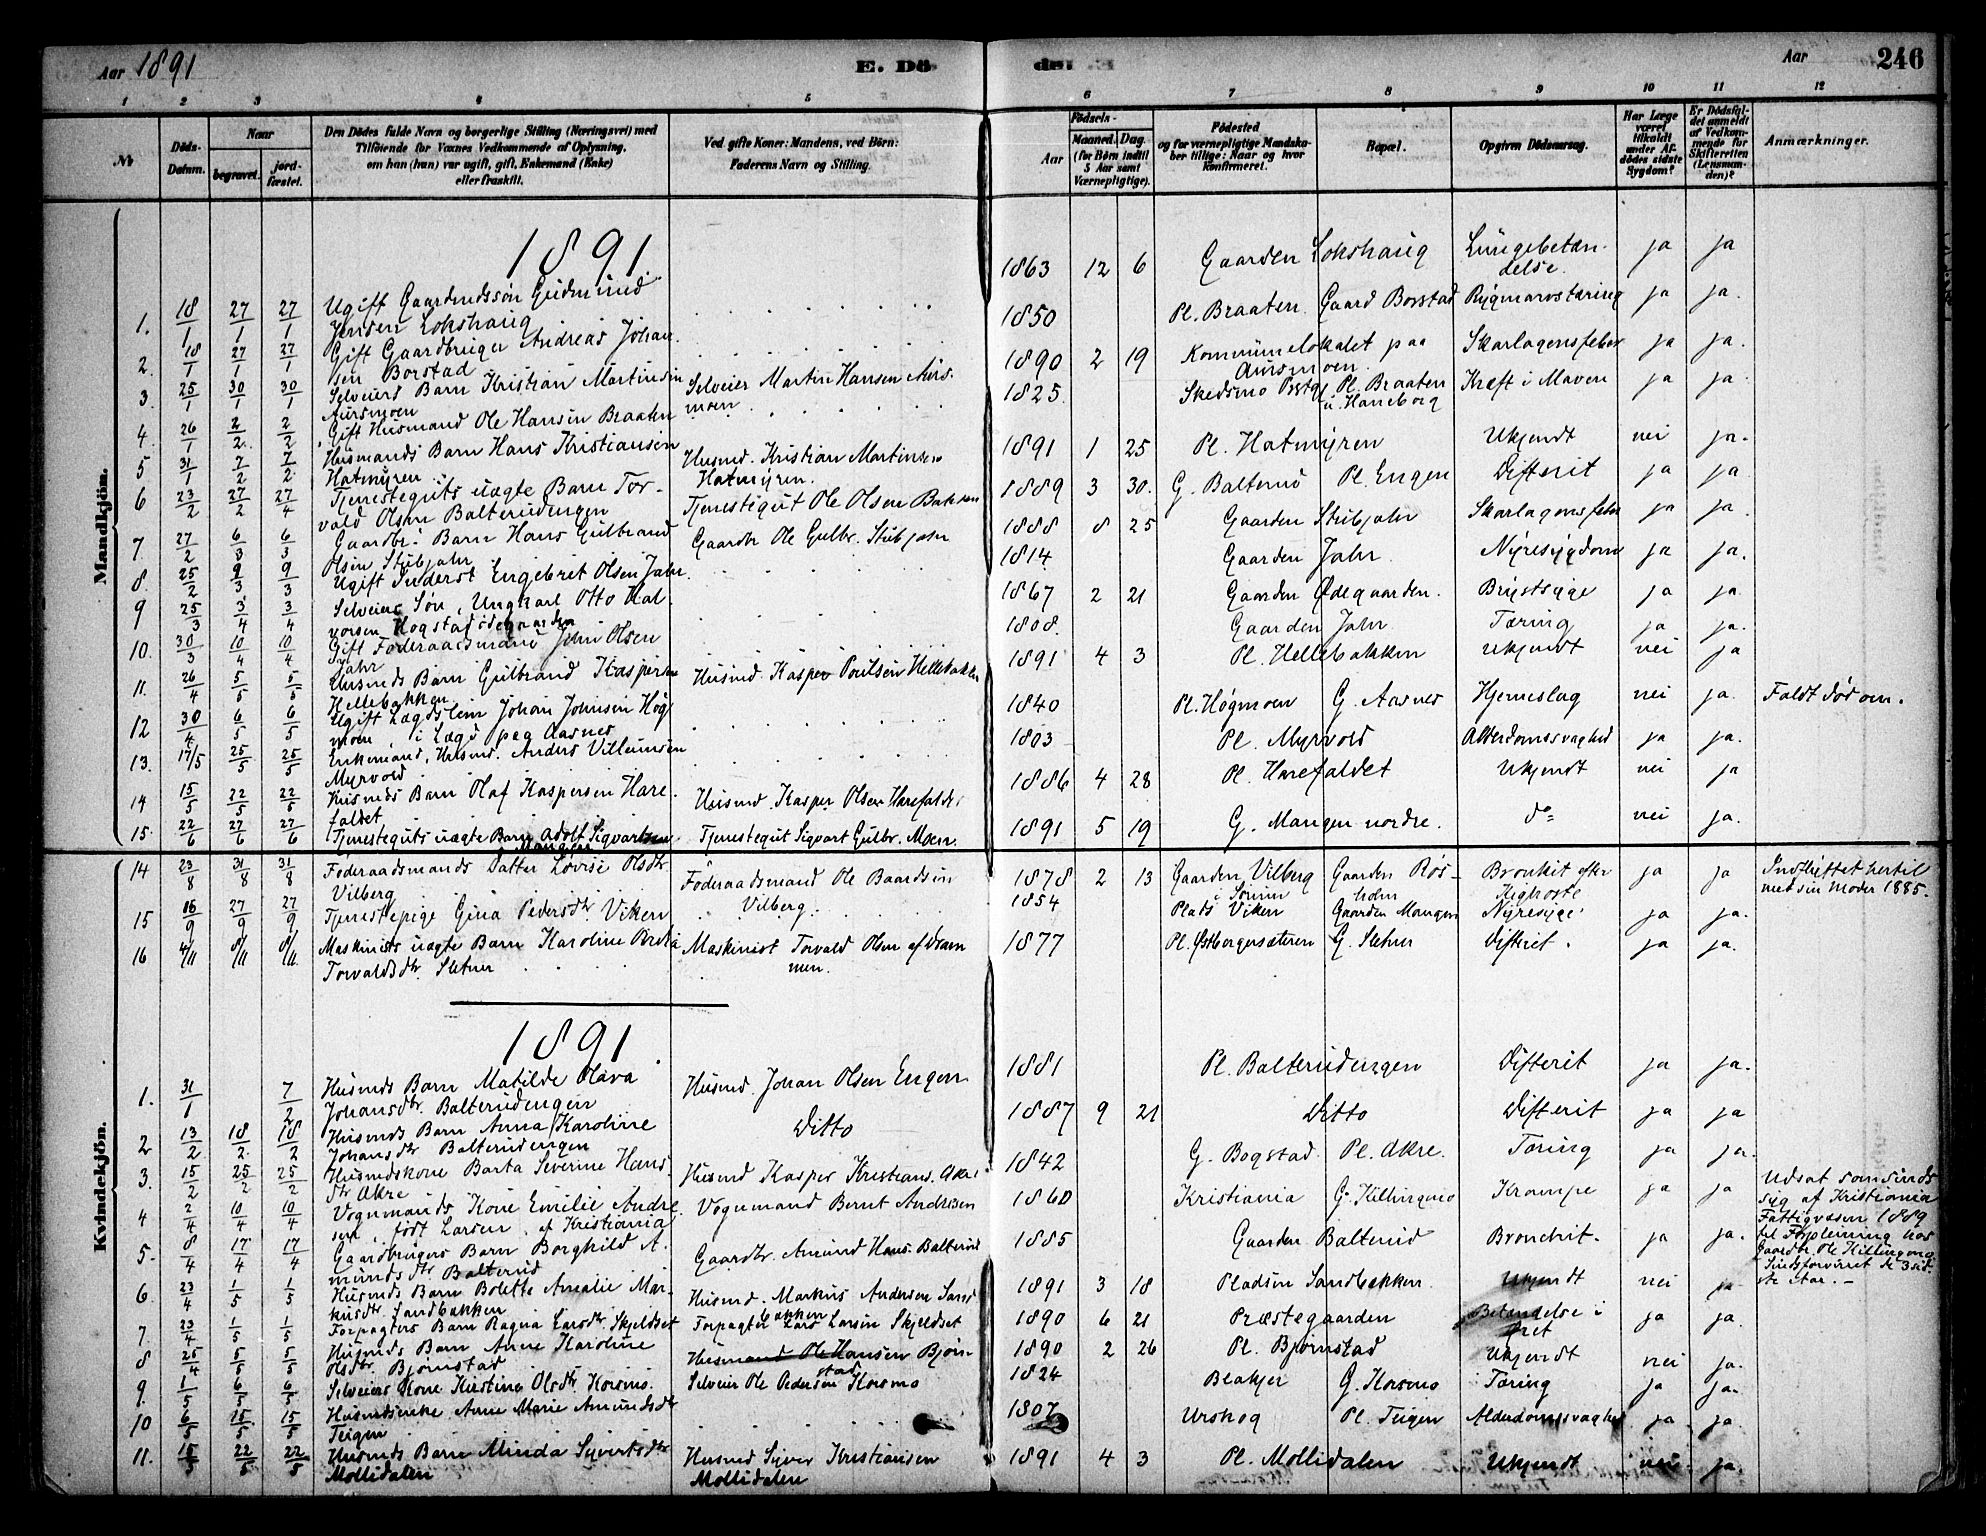 Aar 1891
E. Dö
de.
Aar
246
1 2 3 4 5 6 7 8 9 10 11 12
No
Döds-Datum.
Naar
begravet.
jordfæstet.
Den Dödes fulde Navn og borgerlige Stilling (Næringsvei) med
Tilföiende for Voxnes Vedkommende af Oplysning,
om han (hun) var ugift, gift, Enkemand (Enke)
eller fraskilt.
Ved gifte Koner: Mandens, ved Börn:
Faderens Navn og Stilling.
Födsels-
Aar
Maaned. Dag.
(for Börn indtil
5 Aar samt
Værnepligtige).
Födested
og for værnepligtige Mandskaber tillige: Naar og hvor
konfirmeret.
Bopæl.
Opgiven Dödsaarsag.
Har Læge
været
tilkaldt
under Afdödes sidste
Sygdom?
Er Dödsfaldet anmeldt
af Vedkommende for
Skifteretten
(Lensmanden)?
Anmærkninger.
Mandkjön.
1891
1. 18/1 27/1 27/1 Ugift Gaardmdssøn Gudmund
Jensen Lokshaug 1863 12 6 Gaarden Lokshaug Lungebetændelse. ja ja
2. 18/1 27/1 27/1 Gift Gaardbruger Andreas Johansen Borstad 1850 Pl. Braaten. Gaard Borstad Rygmarvstæring ja ja.
3. 25/1 30/1 30/1 Selveiers Barn Kristian Martinsen
Aursmoen Selveier Martin Hansen Aursmoen 1890 2 19 Kommunelokalet paa
Aursmoen. Skarlagensfeber ja ja.
4. 26/1 2/2 2/2 Gift Husmand Ole Hansen Braaten 1825 Skedsmo Prstg. Pl. Braaten
u. Haneborg Kræft i Maven ja ja.
5 31/1 7/2 7/2 Husmands Barn Hans Kristiansen
Hatmyren Husmd. Kristian Martinsen
Hatmyren. 1891 1 25 Pl. Hatmyren Ukjendt nei ja.
6 23/2 27/2 27/4 Tjenesteguts uægte Barn Torvald Olsen Balterudengen Tjenestegut Ole Olsen Bakken 1889 3 30. G. Balterud Pl. Engen Difterit ja ja
7. 27/2 6/3 6/3 Gaardbr. Barn Hans Gulbrand
Olsen Stubjahr Gaardbr Ole Gulbr. Stubjahr 1888 8 25 Gaarden Stubjahr Skarlagensfeber ja ja
8. 25/2 9/3 9/3 Ugift Inderst Engebret Olsen Jahr. 1814 Gaarden Jahr. Nyresygdom ja ja.
9 25/3 3/4 3/4 Selveiers Søn, Ungkarl Otto Halvorsen Hogstad ødegaarden 1867 2 21 Gaarden Ødegaarden. Brystsyge ja ja.
10. 30/3 10/4 10/4 Gift Føderaadsmand John Olsen
Jahr 1808. Gaarden Jahr. Tæring ja ja.
11. 26/4 5/5 5/5 Husmds Barn Gulbrand Kaspersen
Hellebakken Husmd. Kasper Poulsen Hellebakken 1891 4 3 Pl. Hellebakken Ukjendt nei ja
12 30/4 6/5 6/5 Ugift Lægdslem Johan Johnsen Høgmoen i Lægd paa Aasnes 1840 Pl. Høgmoen G. Aasnes Hjerneslag nei ja. Faldt død om.
13. 17/5 25/5 25/5 Enkemand, Husmd. Anders Villumsen
Myrvold 1803 Pl. Myrvold Alderdomssvaghed ja ja.
14 15/5 22/5 22/5 Husmds Barn Olaf Kaspersen Harefaldet Husmd. Kasper Olsen Harefaldet 1886 4 28 Pl. Harefaldet Ukjendt nei ja
15. 22/6 27/6 27/6 Tjenesteguts uægte Barn Adolf Sigvartsen
Mangen Tjenestegut Sigvart Gulbr. Moen. 1891 5 19 G. Mangen nordre. do nei ja.
14 23/8 31/8 31/8 Føderaadsmands Datter Lovise Olsdtr
Vilberg Føderaadsmand Ole Baardsen
Vilberg. 1878 2 13 Gaarden Vilberg
i Sørum Gaarden Rösholm Bronkit efter
Kighoste ja ja Indflyttet hertil
med sin Moder 1885.
15 16/9 27/9 27/9 Tjenestepige Gina Pedersdtr Viken 1854 Plads Viken Gaarden Mangen Nyresyge ja ja.
16 4/11 8/11 8/11 Maskinists uægte Barn Karoline
Torvaldsdtr. Sletner Maskinist Torvald Olsen af Drammen. 1877 Pl. Østborgersæteren G. Sletner Difterit. ja ja.
Kvindekjön.
1891.
1. 31/1 7/2 Husmds Barn Matilde Olava
Johansdtr. Balterudengen Husmd. Johan Olsen Engen 1881 Pl. Balterudengen Difterit ja ja.
2 13/2 18/2 18/2 Husmds Barn Anna Karoline
Johansdtr Balterudengen Ditto 1887 9 21 Ditto Difterit ja ja
3. 15/2 25/2 25/2 Husmdskone Berta Severine Hansdtr Akre Husmd Kasper Kristians. Akre 1842 G. Bogstad Pl. Akre. Tæring ja ja.
4 2/4 10/4 10/4 Vognmands Kone Emilie Andresen, født Larsen af Kristiania Vognmand Bernt Andresen 1860 Kristiania G. Killingmo Krampe ja ja Udsat som sindssyg af Kristiania
Fattigvæsen 1889
til Forpleining hos
Gaardbr. Ole Killingmo.
Sindsforvirret de 3 sidste Aar.
5. 8/4 17/4 17/4 Gaardbrugers Barn Borghild Amundsdtr Balterud Gaardbr. Amund Hans. Balterud 1885 Gaarden Balterud Bronchit. ja ja.
6. 23/4 1/5 1/5 Husmds Barn Bolette Amalie Markusdtr. Sandbakken Husmd. Markus Andersen Sandbakken 1891 3 18 Pladsen Sandbakken. Ukjendt nei ja
7. 23/4 1/5 1/5 Forpagters Barn Ragna Larsdtr. Skjeldset Forpagter Lars Larsen Skjeldset 1890 6 21 Præstegaarden Betændelse i
Øret ja ja.
8 25/4 5/5 5/5 Husmds Barn Anne Karoline
Olsdtr. Bjørnstad Husmand Ole Hansen Bjørnstad 1890 2 26 Pl. Bjørnstad Ukjendt nei ja.
9. 1/5 6/5 6/5 Selveiers Kone Kirstine Olsdtr. Korsmo. Selveier Ole Pedersen Korsmo 1824 Blakjer G. Korsmo Tæring ja ja.
10 6/5 15/5 15/5 Husmdsenke Anne Marie Amundsdtr
Teigen 1807 Urskog Pl. Teigen Alderdomssvaghed ja ja.
11. 15/5 22/5 22/5 Husmds Barn Minda Syvertsdtr
Mollidalen Husmd Syver Kristiansen
Mollidalen 1891 4 3 Pl. Mollidalen Ukjendt nei ja.